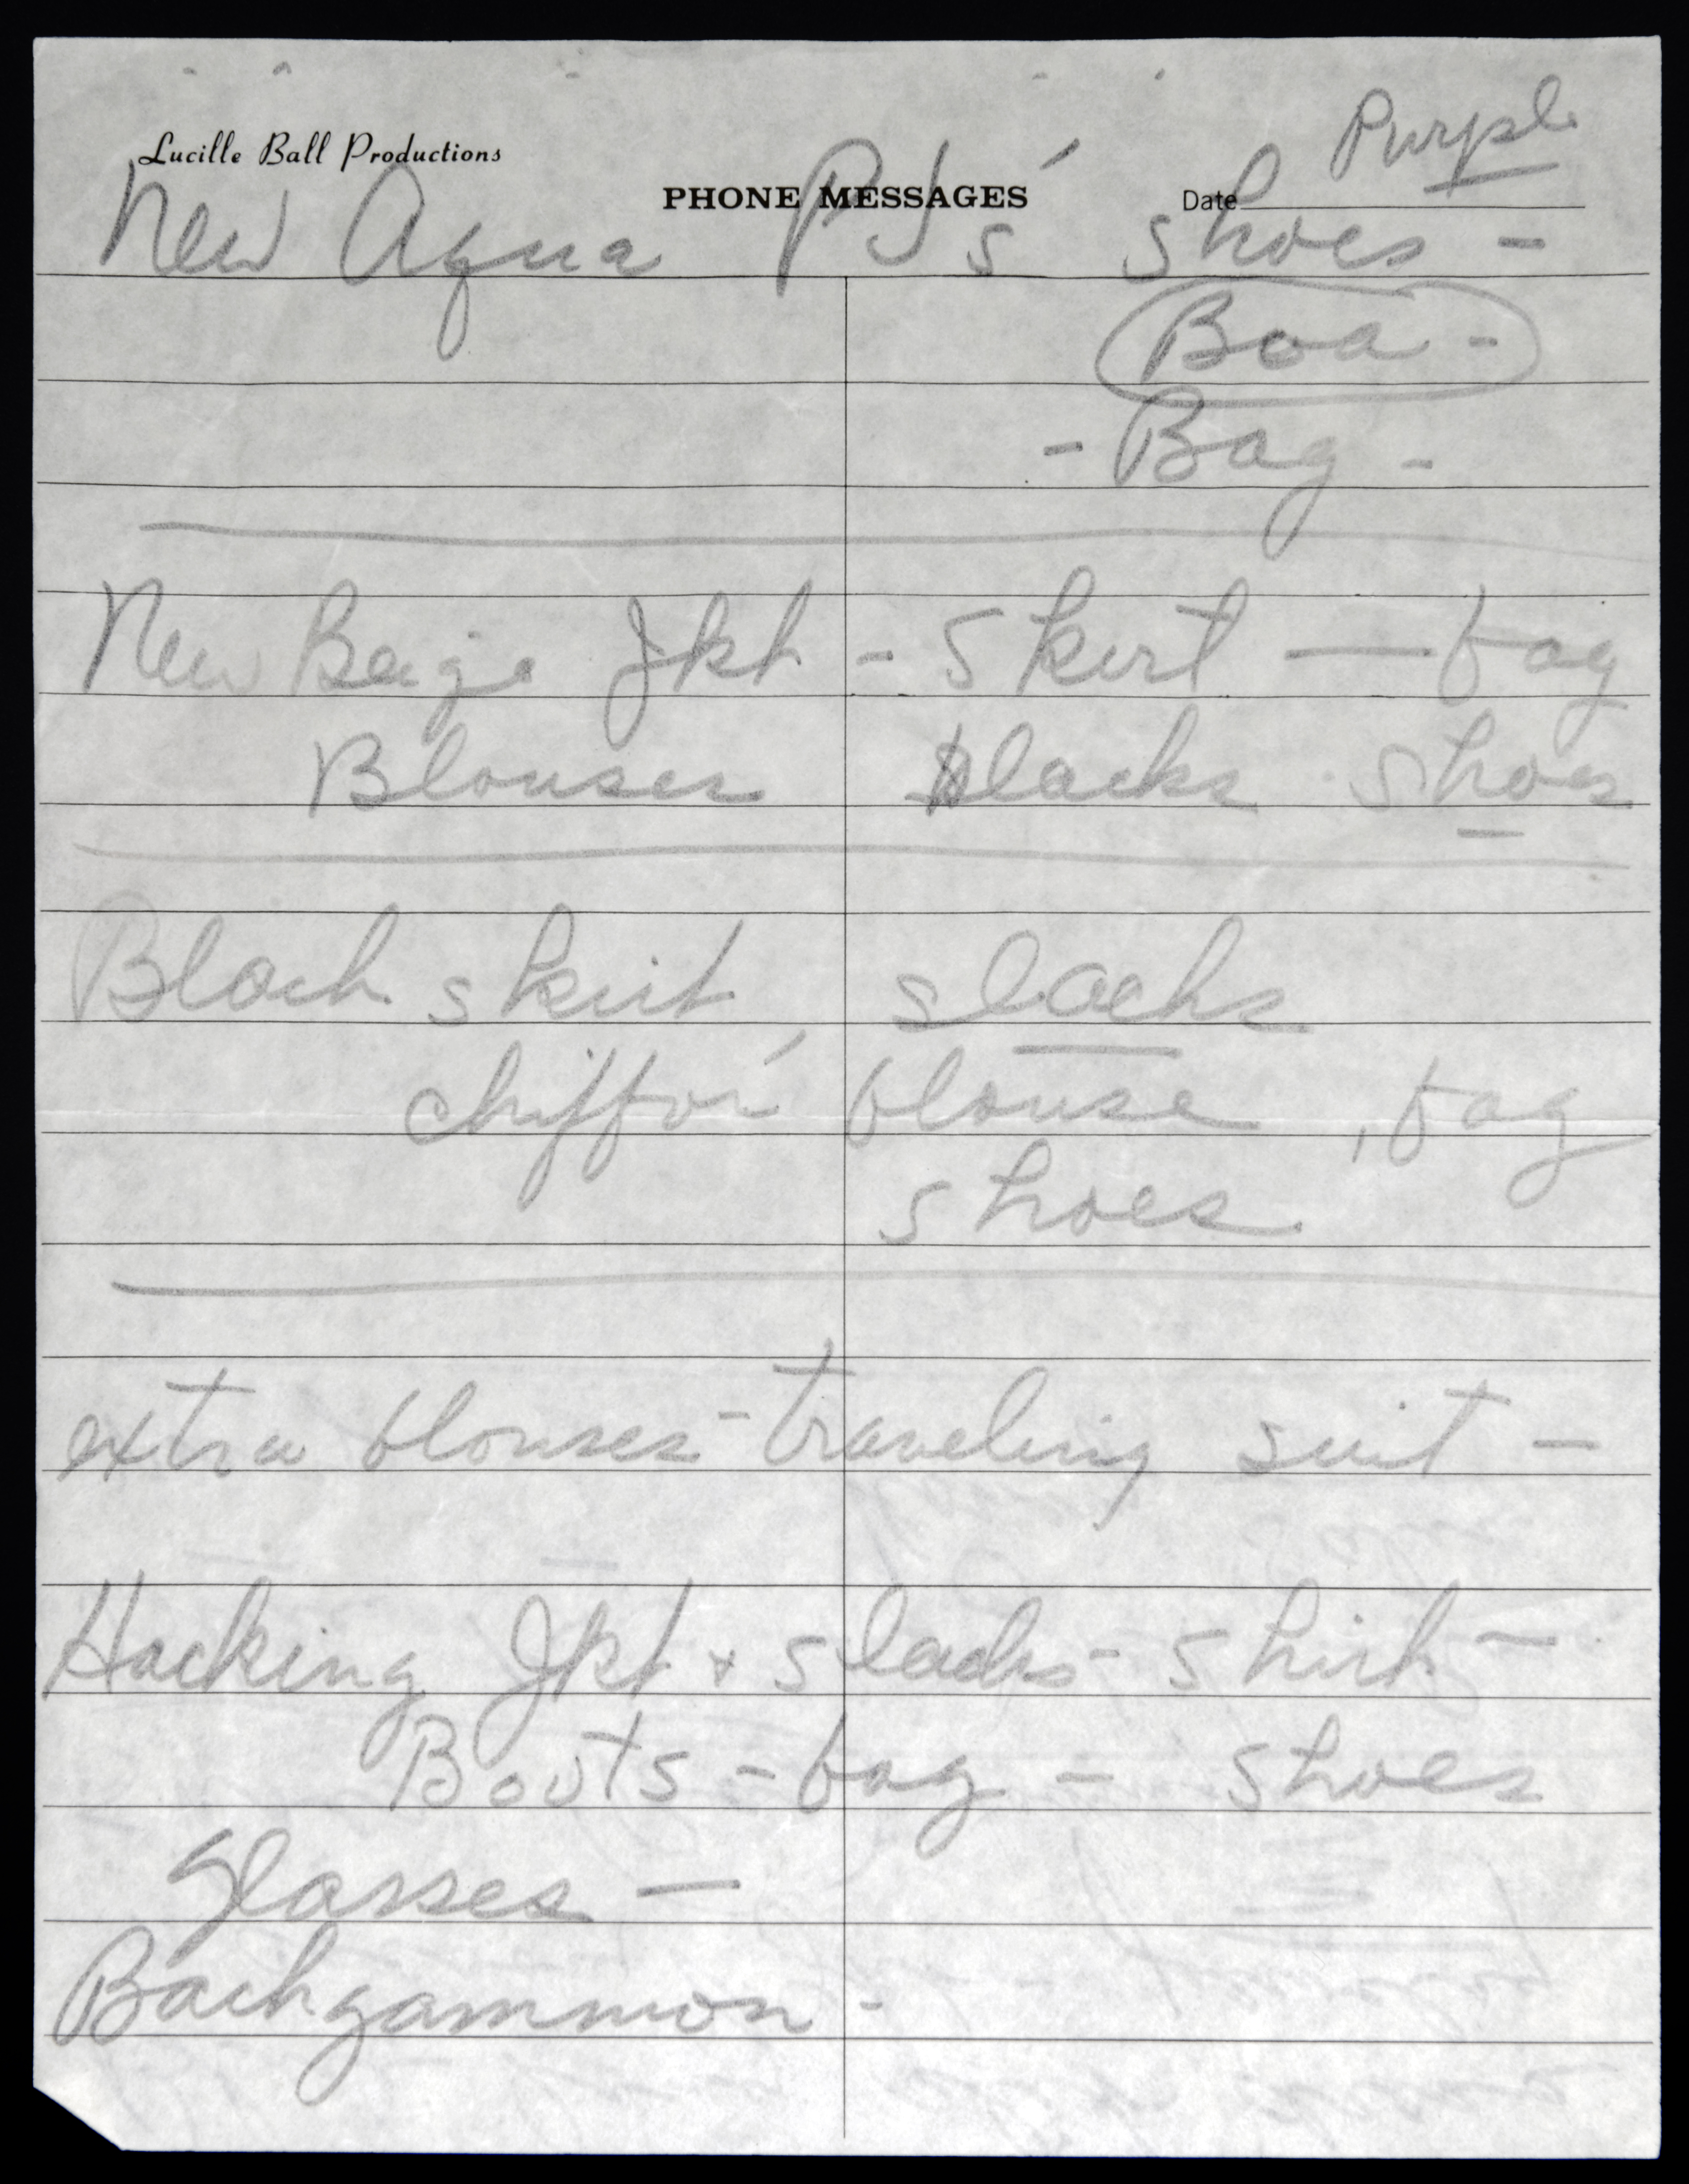 Lucille Ball Productions
Purple
PHONE MESSAGES Date
New Aqua PJ's shoes -
Boa -
- Bag -
New Beige Jkt - Skirt — bag
Blouses slacks shoes
Black skirt, slacks
chiffon blouse, bag
shoes
extra blouses - traveling suit -
Hacking Jkt + slacks - shirt -
Boots - bag - shoes
Glasses —
Backgammon -